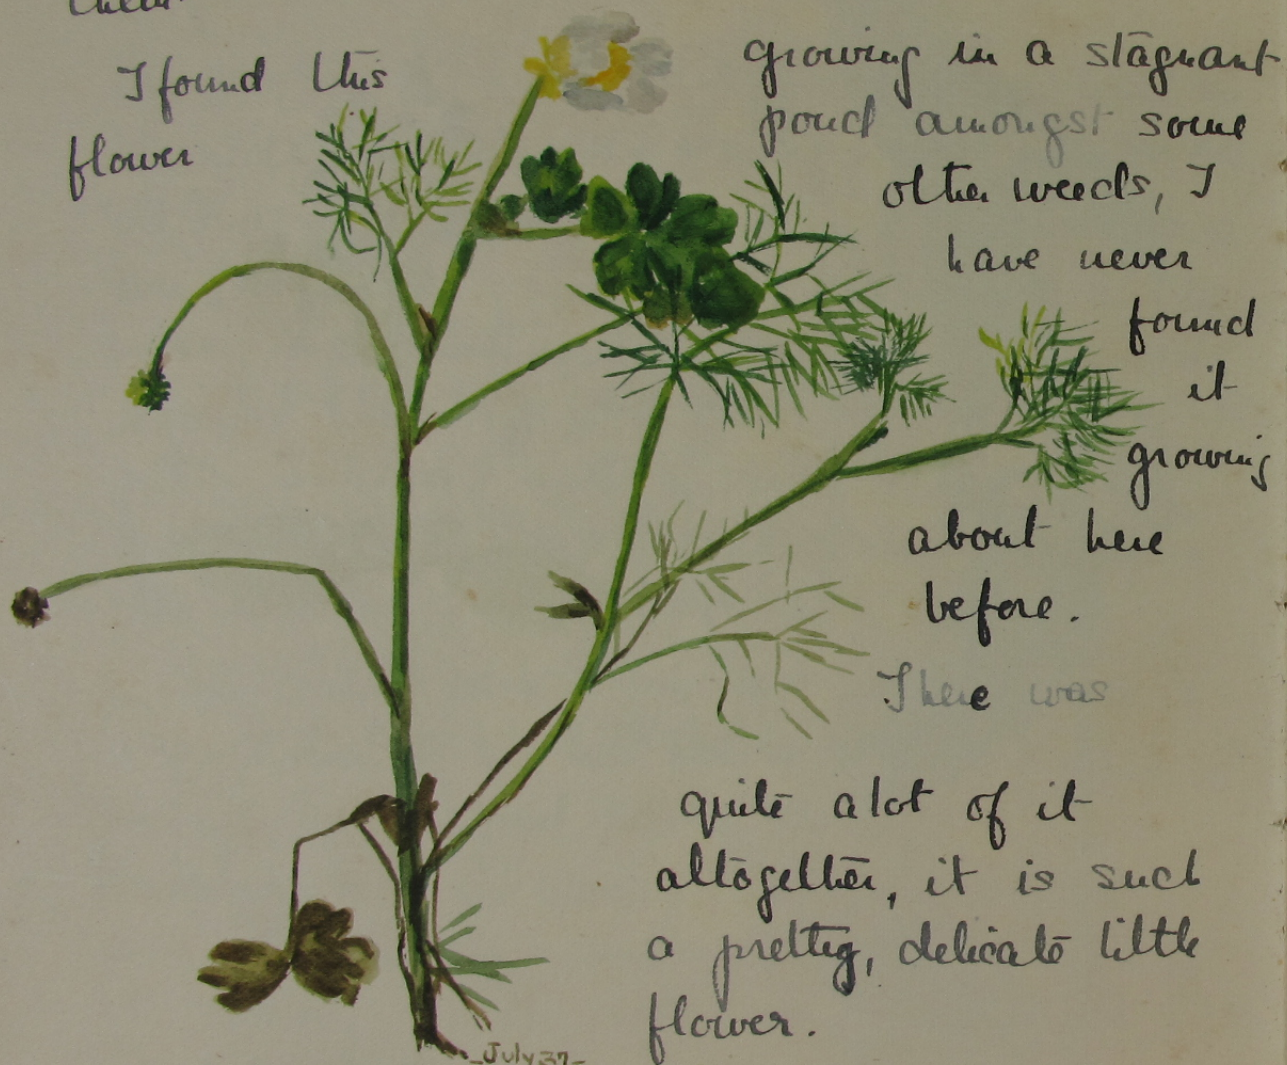 I found this
flower
growing in a stagnant
pond amongst some
other weeds, I
have never
found
it
growing
about here
before.
There was
quite a lot of it
altogether, it is such
a pretty, delicate little
flower.
July 37